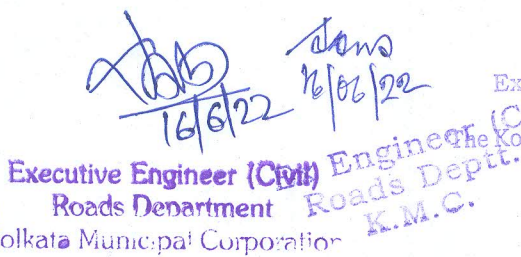 16/6/22
16/06/22
Ex
Executive Engineer (Civil)
Roads Department
olkata Municipal Corporation
Engineer (C
The Ko
Roads Deptt.
K.M.C.